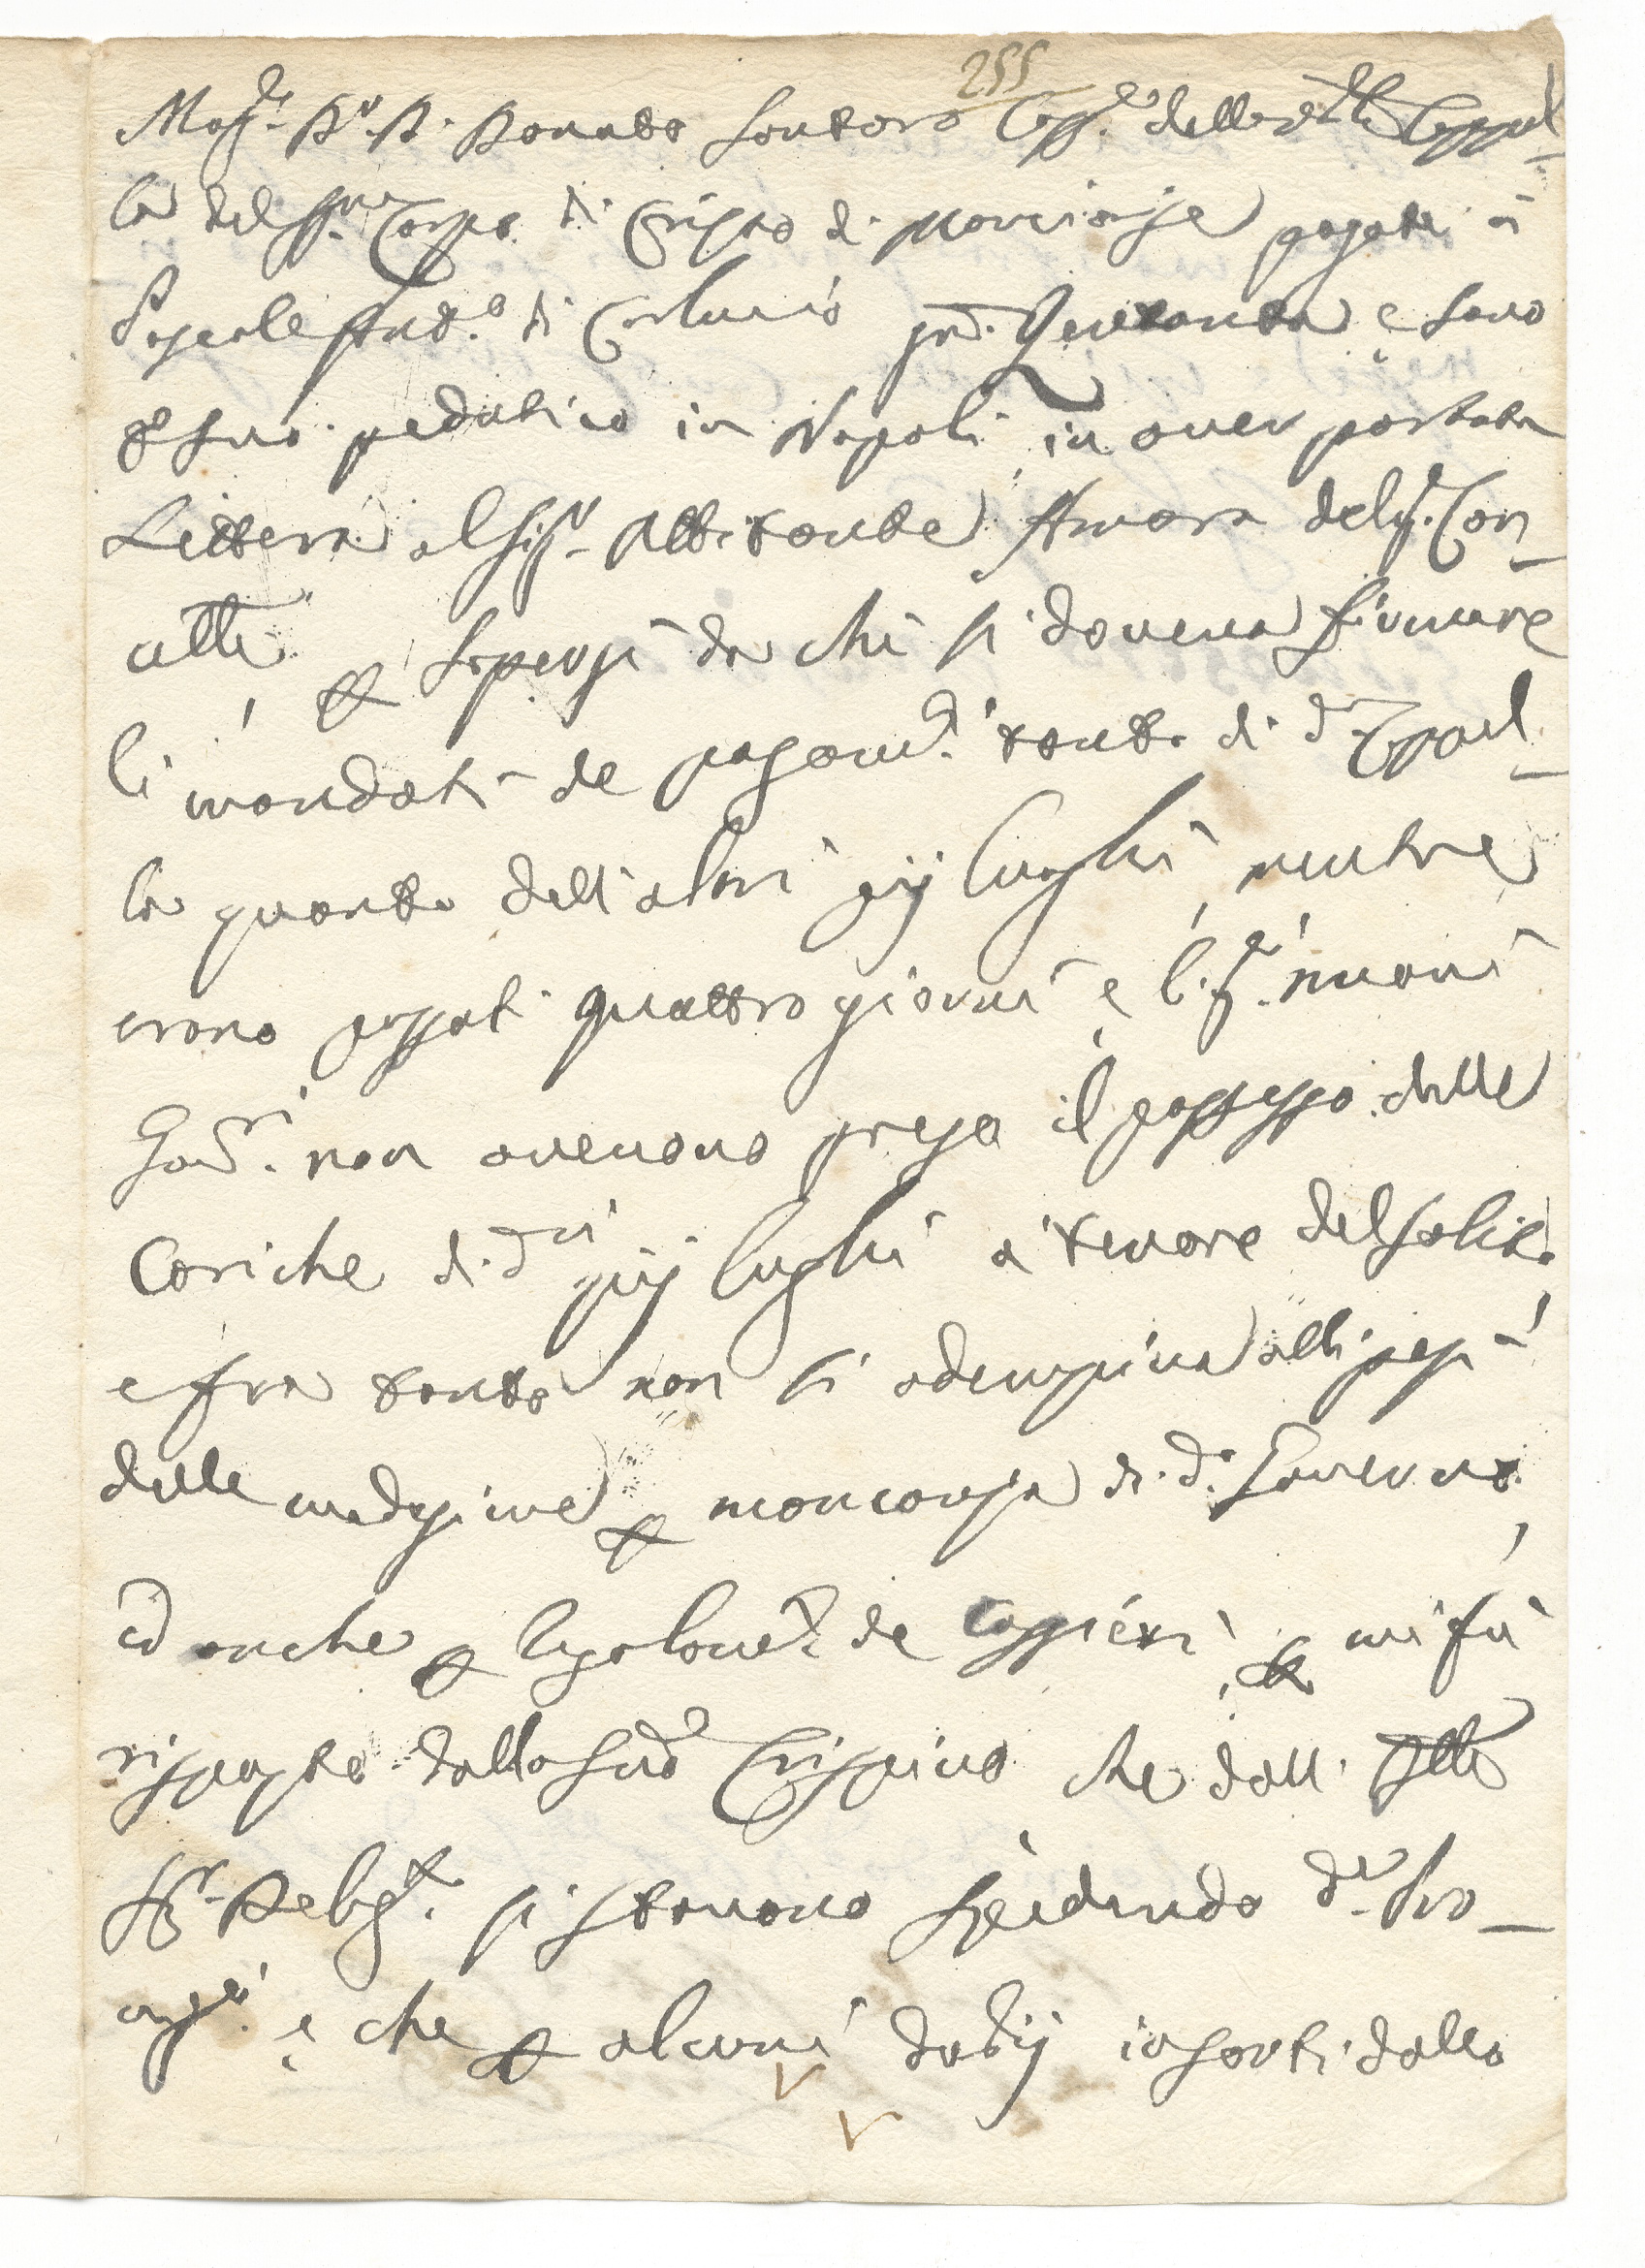 255
Mag.co D.r D. Donato Santoro Cass.re della Ven.le Cappel-
la del SS.mo Corpo di Cristo di Marcianise pagate à
Pascale And.o di Carluccio gr.a Quaranta e sono
p suo pedatico in Napoli in aver portata
Lettera al Sig.r Attitante Amora del q. Con
alli p sapersi da chi si doveva firmare
li mandati de pagam.ti tanto di d.a Cappel-
la quanto dell'altri pij luoghi, mentre
erano passati quattro giorni e li s.i nuovi
Gov.ri non avevano preso il possesso delle
Cariche di d.ti pij luoghi a tenore del solito
e fra tanto non si adempiva alli pesi
delle medesime p mancanza di d.o Governo,
ed anche p l'esalam.to de Cassieri, e mi fù
risposto dallo sud.o Crispino che dall'
Sig.r Deleg.to si stavano spedendo d.e Pro-
e che p alcuni dubij insorti dallo